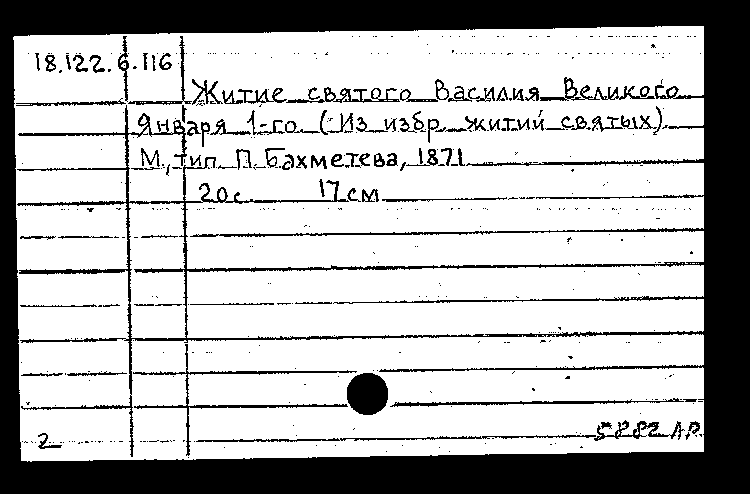 18.122.6.116
Житие святого Василия Великого
Января 1-го. (Из избр. житий святых).
М., тип. П. Бахметева, 1871.
20 с. 17 см.
2
5882 АР